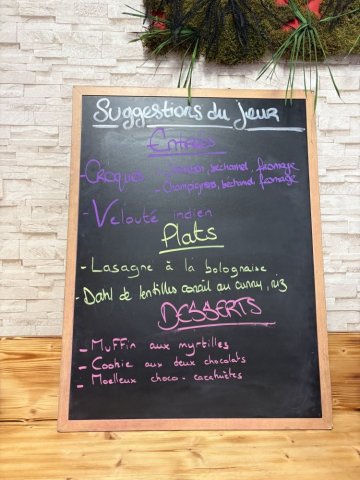 Suggestions du jour
Entrées
- Croques : - jambon, béchamel, fromage
- Champignons, béchamel, fromage
- Velouté indien
Plats
- Lasagne à la bolognaise
- Dahl de lentilles corail au curry, riz
DESSERTS
- Muffin aux myrtilles
- Cookie aux deux chocolats
- Moelleux choco - cacahuètes